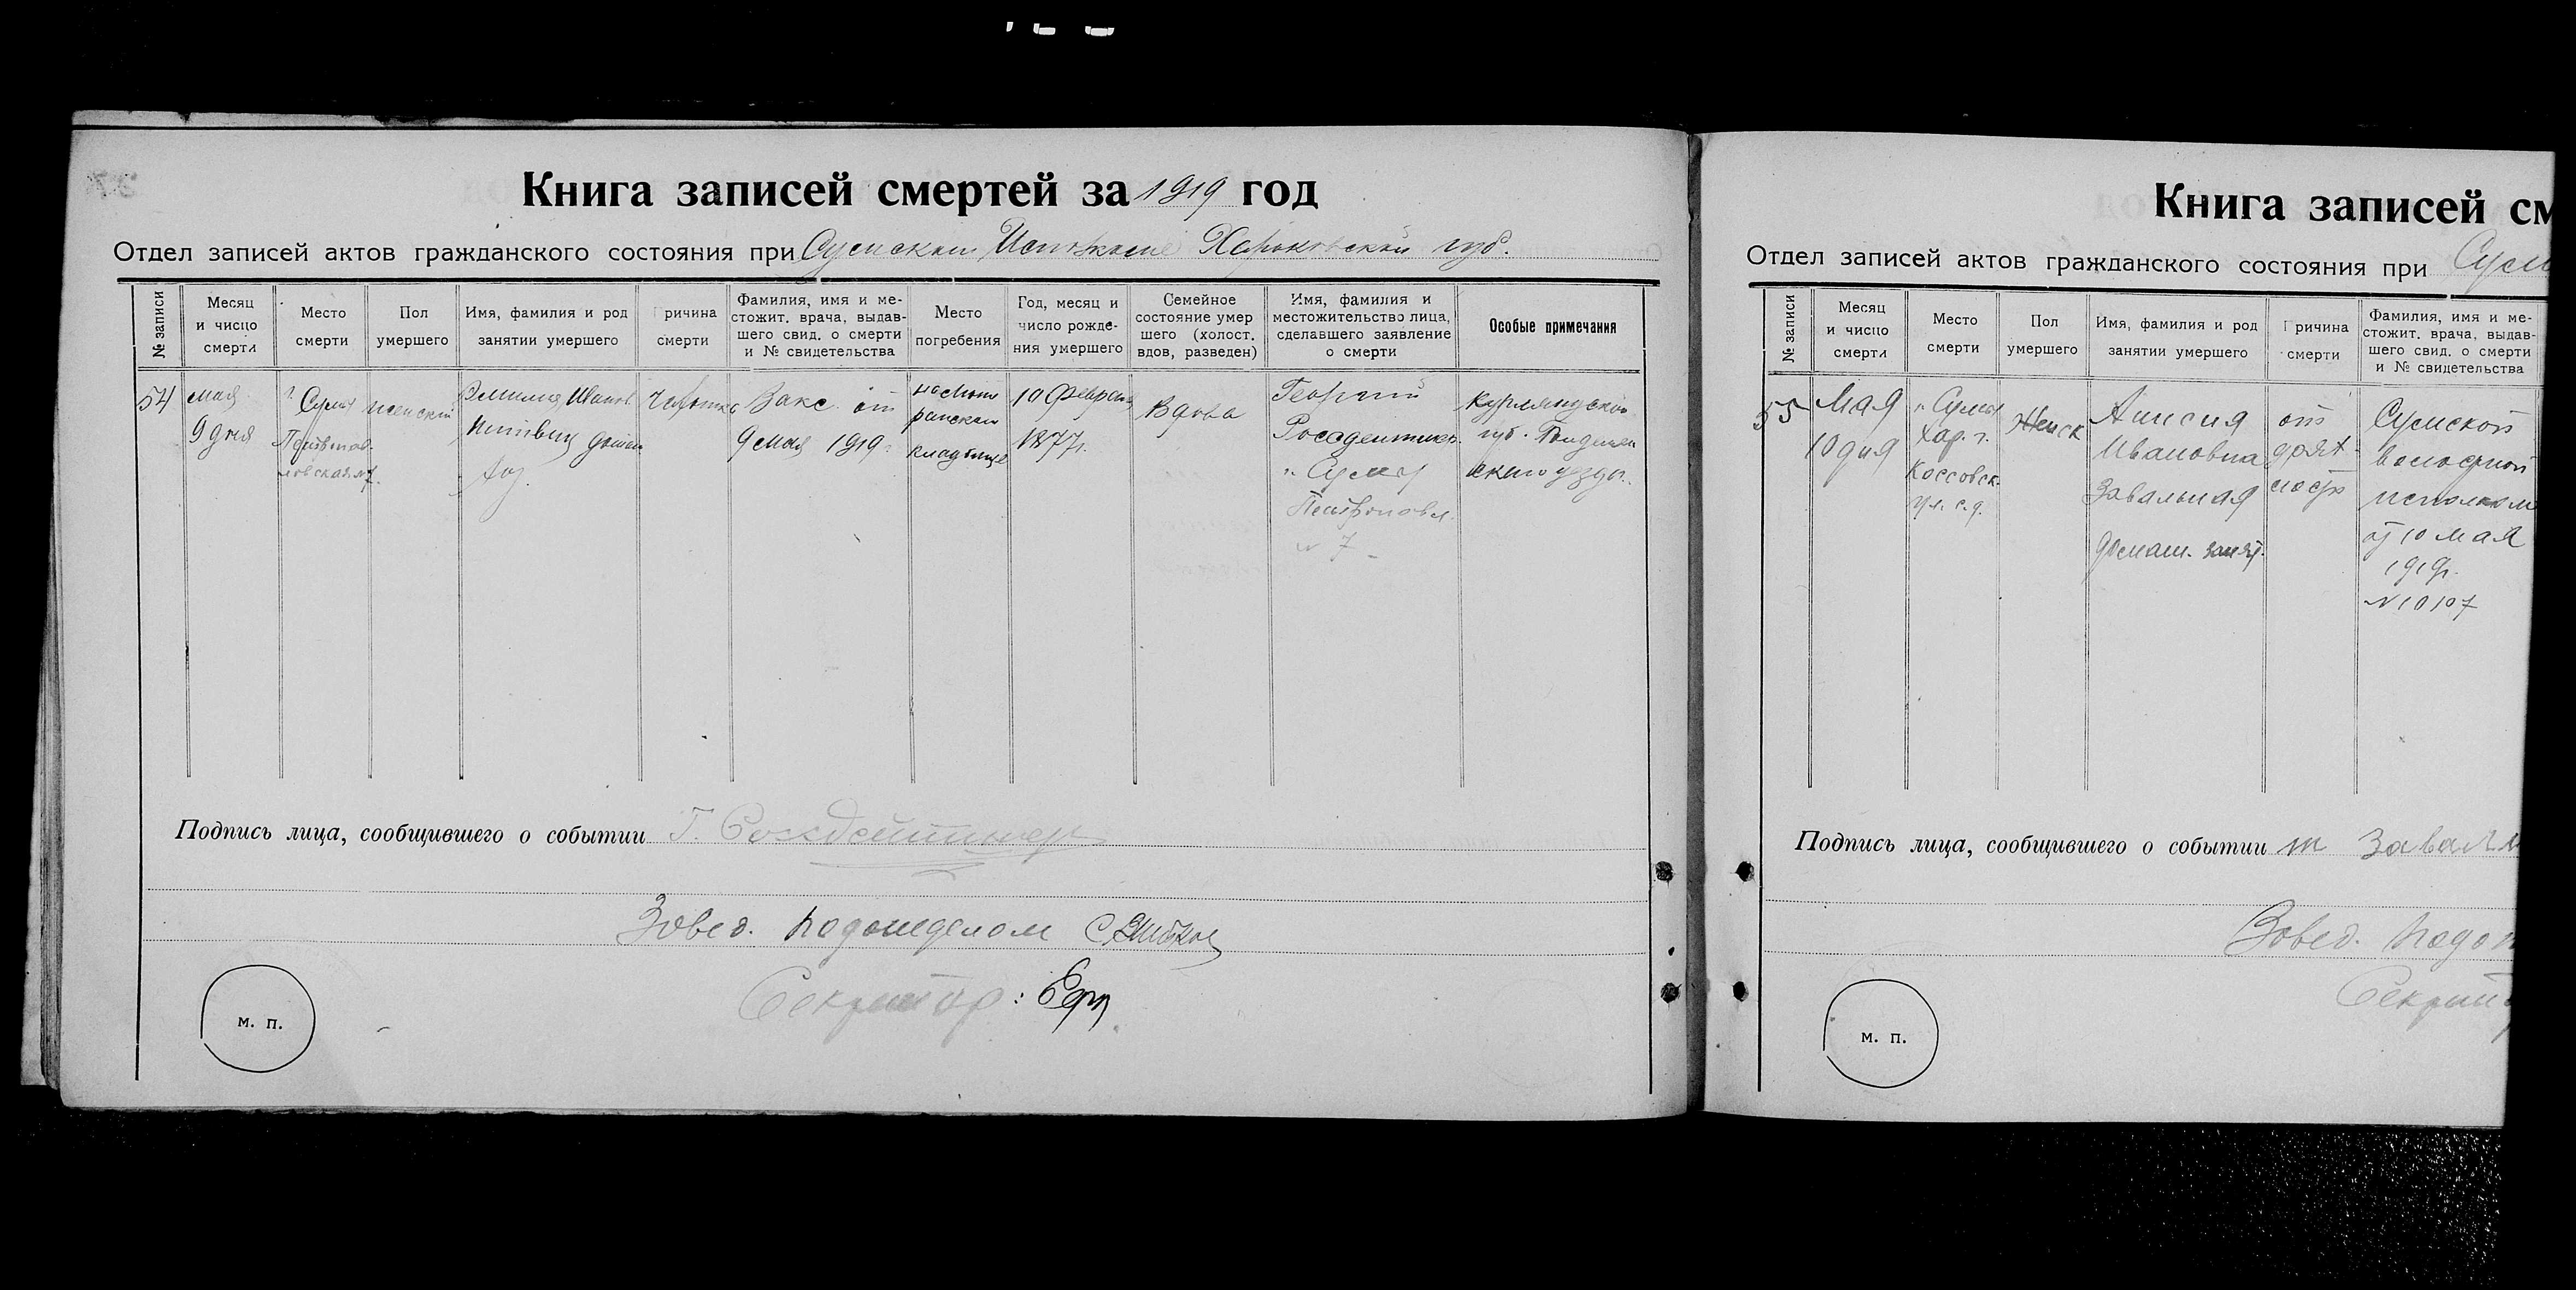 Книга записей смертей за 1919 год
Отдел записей актов гражданского состояния при Сумском Исполкоме Харьковской губ.
№ записи
Месяц
и чисцо
смерти
Место
смерти
Пол
умершего
Имя, фамилия и род
занятии умершего
Причина
смерти
Фамилия, имя и ме-
стожит. врача, выдав-
шего свид. о смерти
и № свидетельства
Место
погребения
Год, месяц и
число рожде-
ния умершего
Семейное
состояние умер
шего (холост.
вдов, разведен)
Имя, фамилия и
местожительство лица,
сделавшего заявление
о смерти
Особые примечания
54
мая
9 дня
г. Сумы
женский
Эмилия Иванов.
домаш.
Чахотка
Закс от
9 мая 1919 г.
на Люте
ранском
кладбище
10 Февраля
1877 г.
Вдова
Георгий
г. Сумы
Петропавл.
№ 7
Курляндской
губ.
ского уезда.
Подпись лица, сообщившего о событии Г.
Завед. подотделом
Секретарь:
м. п.
Книга записей см
Отдел записей актов гражданского состояния при Сум
№ записи
Месяц
и чисцо
смерти
Место
смерти
Пол
умершего
Имя, фамилия и род
занятии умершего
Причина
смерти
Фамилия, имя и ме-
стожит. врача, выдав-
шего свид. о смерти
и № свидетельства
55
Мая
10 дня
г. Сумы
Хар. г.
Коссовск.
ул. с. д.
Женск
Анисия
Ивановна
Завальная
домаш. занят.
от
дрях-
лости
Сумской
волостной
исполком
от 10 мая
1919 г.
№ 10107
Подпись лица, сообщившего о событии т Завал
Завед. подот
Секрет
м. п.